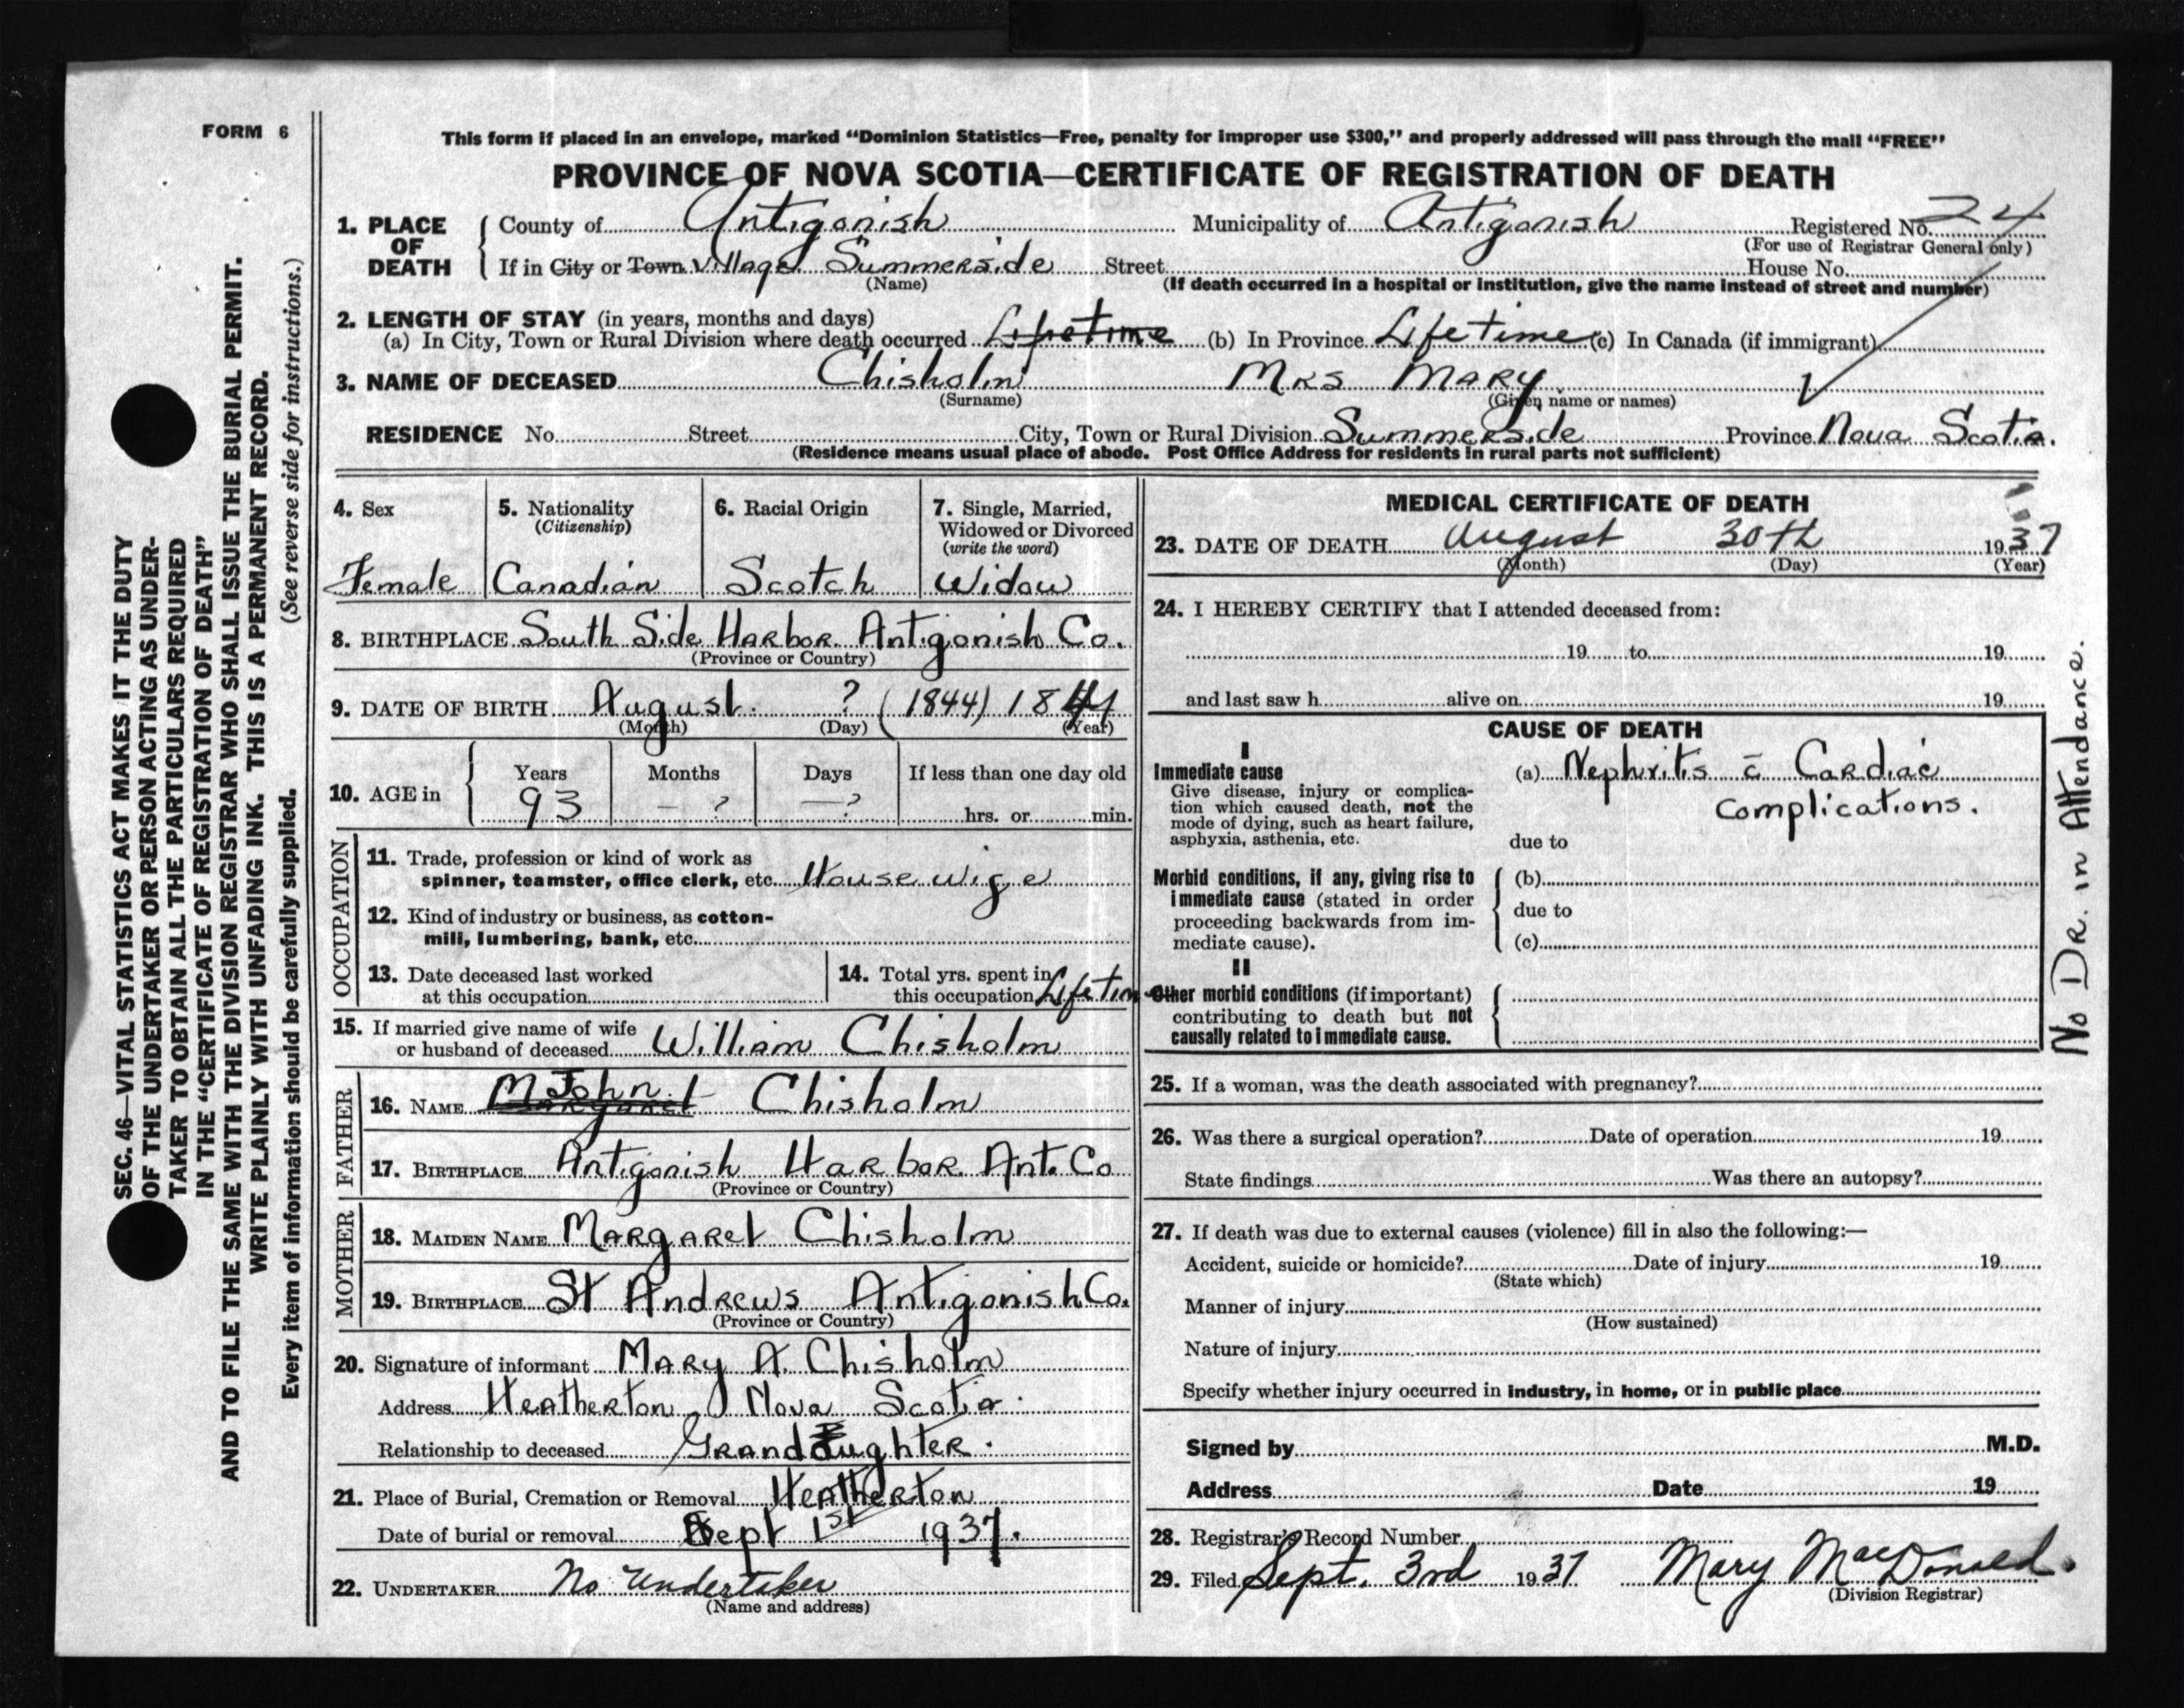 FORM 6
This form if placed in an envelope, marked “Dominion Statistics—Free, penalty for improper use $300,” and properly addressed will pass through the mail “FREE”
PROVINCE OF NOVA SCOTIA—CERTIFICATE OF REGISTRATION OF DEATH
1. PLACE OF DEATH { County of Antigonish Municipality of Antigonish Registered No. 24
(For use of Registrar General only)
If in City or Town Village Summerside Street House No.
(Name) (If death occurred in a hospital or institution, give the name instead of street and number)
2. LENGTH OF STAY (in years, months and days)
(a) In City, Town or Rural Division where death occurred Lifetime (b) In Province Lifetime (c) In Canada (if immigrant)
3. NAME OF DECEASED Chisholm Mrs Mary
(Surname) (Given name or names)
RESIDENCE No. Street City, Town or Rural Division Summerside Province Nova Scotia.
(Residence means usual place of abode. Post Office Address for residents in rural parts not sufficient)
4. Sex
Female
5. Nationality
(Citizenship)
Canadian
6. Racial Origin
Scotch
7. Single, Married,
Widowed or Divorced
(write the word)
Widow
8. BIRTHPLACE South Side Harbor Antigonish Co.
(Province or Country)
9. DATE OF BIRTH August ? (1844) 1844
(Month) (Day) (Year)
10. AGE in { Years Months Days If less than one day old
93 — ? — ? hrs. or min.
OCCUPATION
11. Trade, profession or kind of work as
spinner, teamster, office clerk, etc. House wife
12. Kind of industry or business, as cotton-
mill, lumbering, bank, etc.
13. Date deceased last worked
at this occupation
14. Total yrs. spent in
this occupation Lifetim
15. If married give name of wife
or husband of deceased William Chisholm
FATHER
16. NAME Margaret John Chisholm
17. BIRTHPLACE Antigonish Harbor Ant. Co
(Province or Country)
MOTHER
18. MAIDEN NAME Margaret Chisholm
19. BIRTHPLACE St Andrews Antigonish Co.
(Province or Country)
20. Signature of informant Mary A. Chisholm
Address Heatherton, Nova Scotia.
Relationship to deceased Granddaughter.
21. Place of Burial, Cremation or Removal Heatherton
Date of burial or removal Sept 1st 1937.
22. UNDERTAKER No Undertaker
(Name and address)
MEDICAL CERTIFICATE OF DEATH
23. DATE OF DEATH August 30th 1937
(Month) (Day) (Year)
24. I HEREBY CERTIFY that I attended deceased from:
19 to 19
and last saw h alive on 19
CAUSE OF DEATH
I
Immediate cause
Give disease, injury or complica-
tion which caused death, not the
mode of dying, such as heart failure,
asphyxia, asthenia, etc.
(a) Nephritis c̄ Cardiac
complications.
due to
Morbid conditions, if any, giving rise to
immediate cause (stated in order
proceeding backwards from im-
mediate cause).
(b)
due to
(c)
II
Other morbid conditions (if important)
contributing to death but not
causally related to immediate cause.
No Dr. in Attendance.
25. If a woman, was the death associated with pregnancy?
26. Was there a surgical operation? Date of operation 19
State findings Was there an autopsy?
27. If death was due to external causes (violence) fill in also the following:—
Accident, suicide or homicide? Date of injury 19
(State which)
Manner of injury
(How sustained)
Nature of injury
Specify whether injury occurred in industry, in home, or in public place
Signed by M.D.
Address Date 19
28. Registrar's Record Number
29. Filed Sept. 3rd 1937 Mary MacDonald.
(Division Registrar)
SEC. 46—VITAL STATISTICS ACT MAKES IT THE DUTY
OF THE UNDERTAKER OR PERSON ACTING AS UNDER-
TAKER TO OBTAIN ALL THE PARTICULARS REQUIRED
IN THE “CERTIFICATE OF REGISTRATION OF DEATH”
AND TO FILE THE SAME WITH THE DIVISION REGISTRAR WHO SHALL ISSUE THE BURIAL PERMIT.
WRITE PLAINLY WITH UNFADING INK. THIS IS A PERMANENT RECORD.
Every item of information should be carefully supplied. (See reverse side for instructions.)